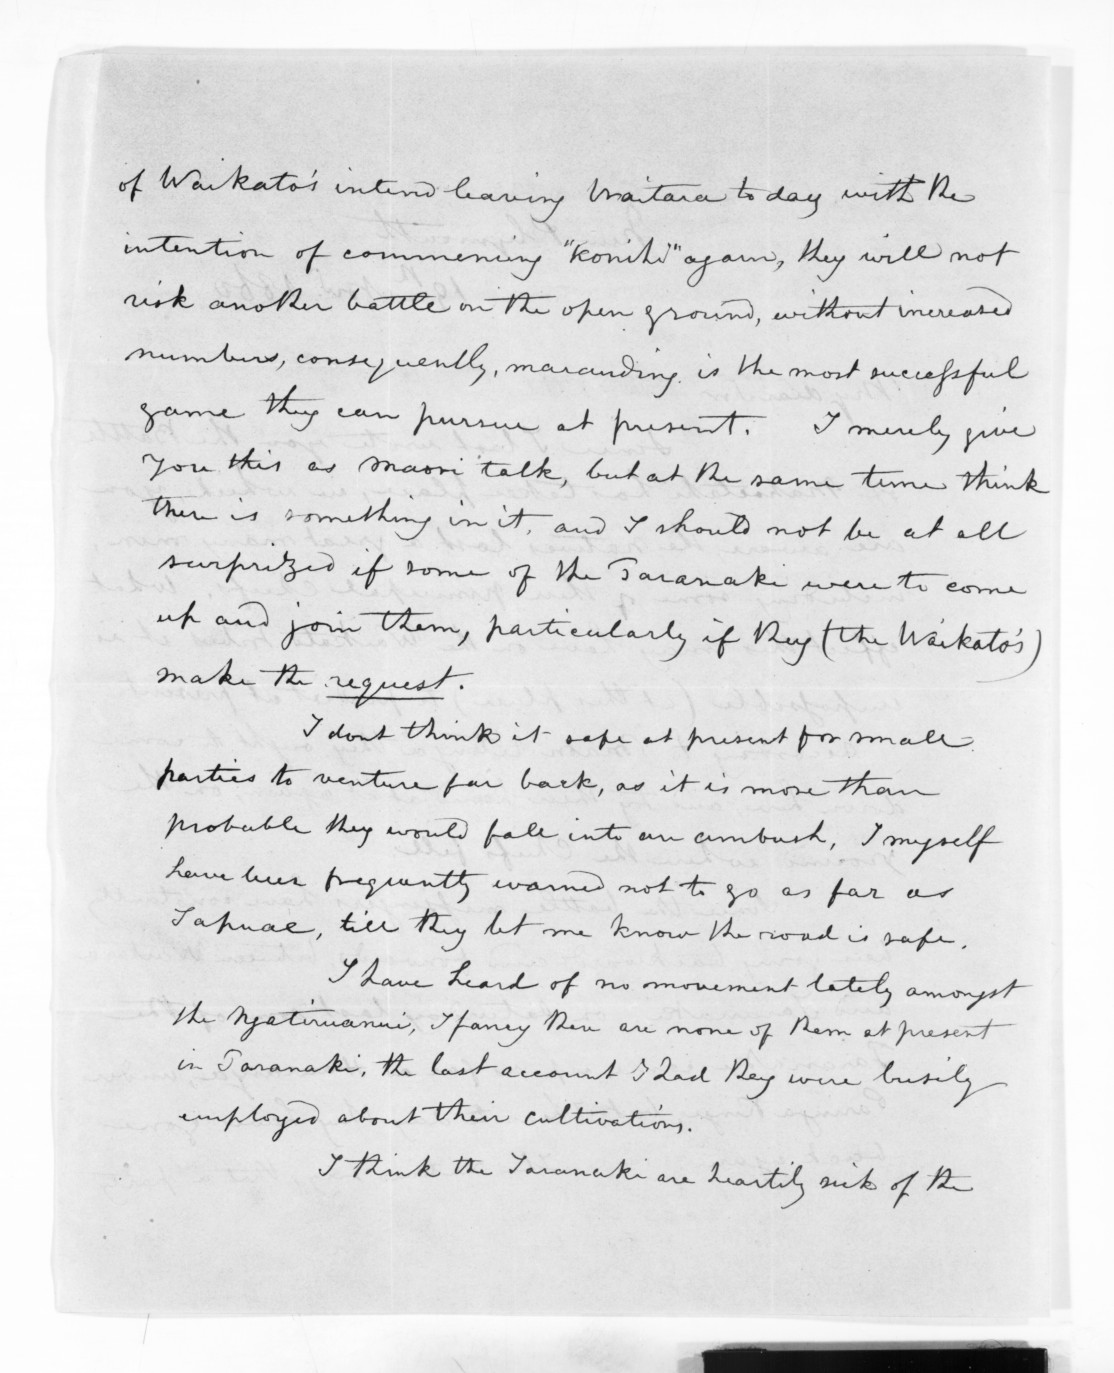 of Waikato's intend leaving Waitara to day with the
intention of commencing "konihi" again, they will not
risk another battle on the open ground, without increased
numbers, consequently, marauding is the most successful
game they can pursue at present. I merely give
you this as maori talk, but at the same time think
there is something in it, and I should not be at all
surprized if some of the Taranaki were to come
up and join them, particularly if they (the Waikato's)
make the request.
I dont think it safe at present for small
parties to venture far back, as it is more than
probable they would fall into an ambush, I myself
have been frequently warned not to go as far as
Tapuae, till they let me know the road is safe.
I have heard of no movement lately amongst
the Ngatiruanui, I fancy there are none of them at present
in Taranaki, the last account I had they were busily
employed about their cultivations.
I think the Taranaki are heartily sick of the